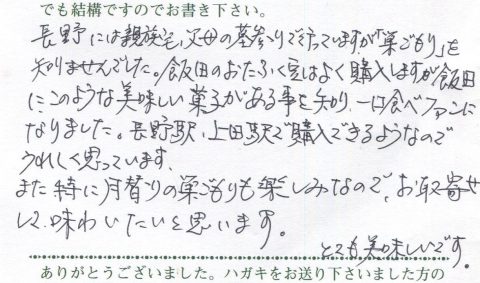 でも結構ですのでお書き下さい。
長野には親族宅、父母の墓参りで行っていますが「巣ごもり」を
知りませんでした。飯田のおたふく豆はよく購入しますが飯田
にこのような美味しい菓子がある事を知り、一口食べファンに
なりました。長野駅、上田駅で購入できるようなので
うれしく思っています。
また特に月替りの巣ごもりも楽しみなので、お取寄せ
して味わいたいと思います。
とても美味しいです。
ありがとうございました。ハガキをお送り下さいました方の